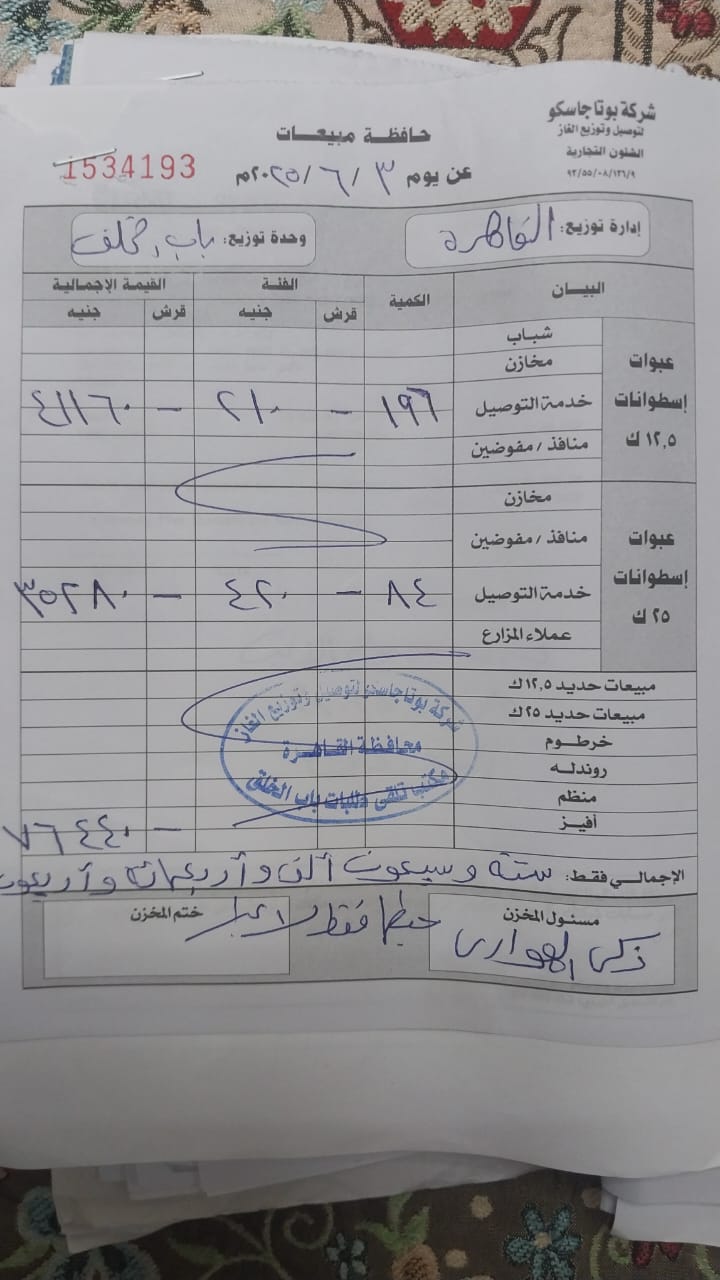 شركة بوتاجاسكو
لتوصيل وتوزيع الغاز
الشئون التجارية
٩٢/٥٥/٠٨/١٣٦/٩
حافظة مبيعات
1534193
عن يوم ٣ / ٦ / ٢٠٢٥م
إدارة توزيع: القاهرة وحدة توزيع: باب الخلق
البيان الكمية الفئة القيمة الإجمالية
قرش جنيه قرش جنيه
عبوات إسطوانات ١٢,٥ ك
شباب
مخازن
خدمة التوصيل ١٩٦ - ٢١٠ - ٤١١٦٠
منافذ / مفوضين
عبوات إسطوانات ٢٥ ك
مخازن
منافذ / مفوضين
خدمة التوصيل ٨٤ - ٤٢٠ - ٣٥٢٨٠
عملاء المزارع
مبيعات حديد ١٢,٥ك
مبيعات حديد ٢٥ك
خرطوم
روندله
منظم
أفيز
- ٧٦٤٤٠
شركة بوتاجاسكو لتوصيل وتوزيع الغاز
محافظة القاهرة
مكتب تلقى طلبات باب الخلق
الإجمالي فقط: ستة وسبعون ألف وأربعمائة وأربعون
جنيها فقط لا غير
مسئول المخزن ختم المخزن
زكى الهوارى